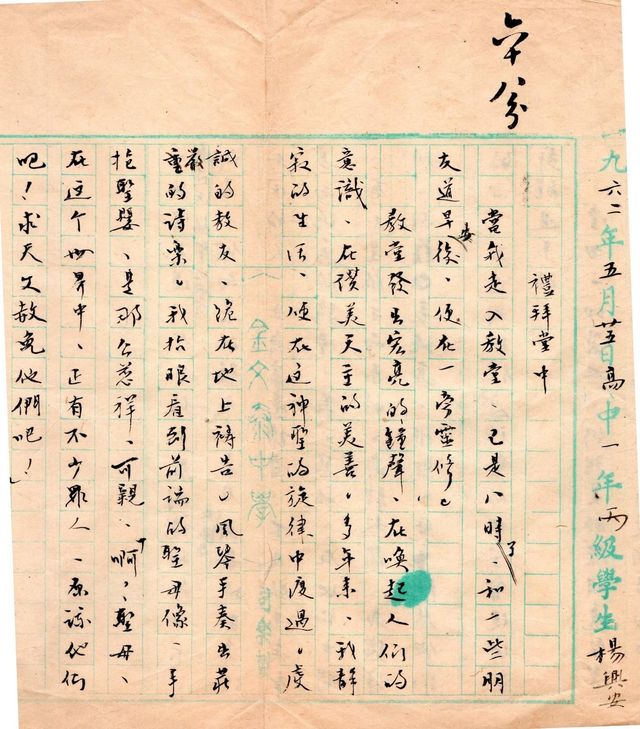 一九六二年五月廿五日高中一年丙級學生楊興安
禮拜堂中
當我走入教堂、已是八時了、和一些朋
友道早安後、便在一旁靈修。
教堂發出宏亮的鐘聲、在喚起人们的
意識、在讚美天主的美善。多年来、我靜
寂的生活、便在這神聖的旋律中度過。虔
誠的教友、跪在地上禱告。風琴手奏出莊
嚴重的詩樂。我抬眼看到前端的聖母像、手
抱聖嬰、是那么慈祥、可親、啊、聖母、
在这个世界中、正有不少罪人、原諒他们
吧！求天父赦免他們吧！」
分